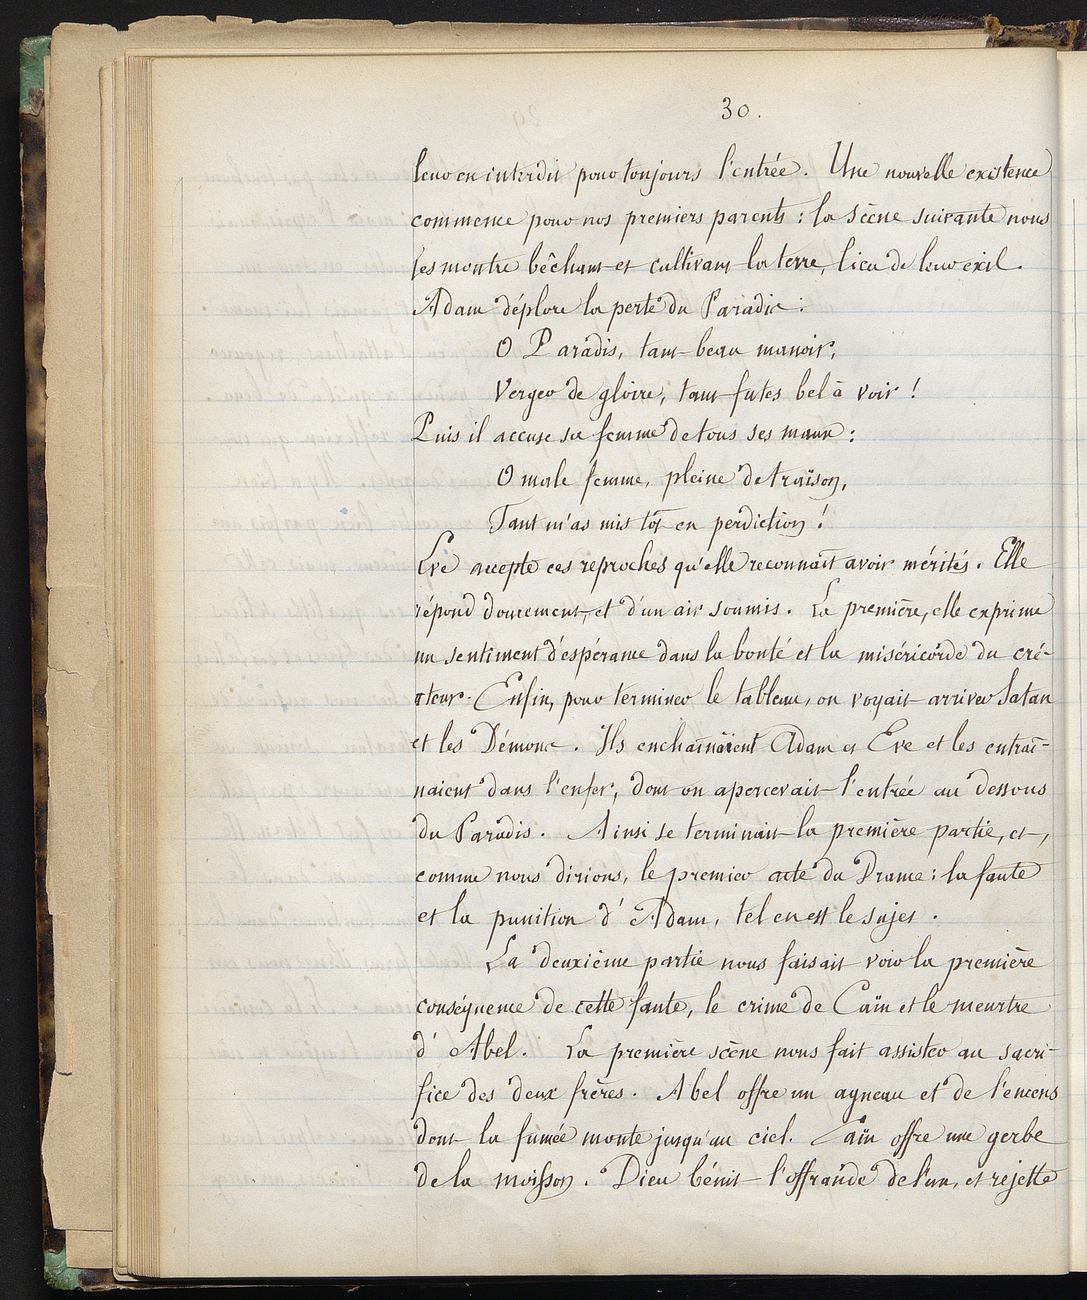 30.
leur en interdit pour toujours l'entrée. Une nouvelle existence
commence pour nos premiers parents : la Scène suivante nous
les montre bêchant et cultivant la terre, lieu de leur exil.
Adam déplore la perte du Paradis :
O Paradis, tant beau manoir,
Verger de gloire, tant futes bel à voir !
Puis il accuse sa femme de tous ses maux :
O male femme, pleine de traïson,
Tant m'as mis tôt en perdiction !
Eve accepte ces reproches qu'elle reconnaît avoir mérités. Elle
répond doucement et d'un air soumis. La première, elle exprime
un sentiment d'espérance dans la bonté et la miséricorde du cré-
ateur. Enfin, pour terminer le tableau, on voyait arriver Satan
et les Démons. Ils enchaînaient Adam et Eve et les entraî-
naient dans l'enfer, dont on apercevait l'entrée au dessous
du Paradis. Ainsi se terminait la première partie, et,
comme nous dirions, le premier acte du Drame : la faute
et la punition d'Adam, tel en est le sujet.
La deuxième partie nous faisait voir la première
conséquence de cette faute, le crime de Caïn et le meurtre
d'Abel. La première scène nous fait assister au sacri-
fice des deux frères. Abel offre un agneau et de l'encens
dont la fumée monte jusqu'au ciel. Caïn offre une gerbe
de la moisson. Dieu bénit l'offrande de l'un, et rejette